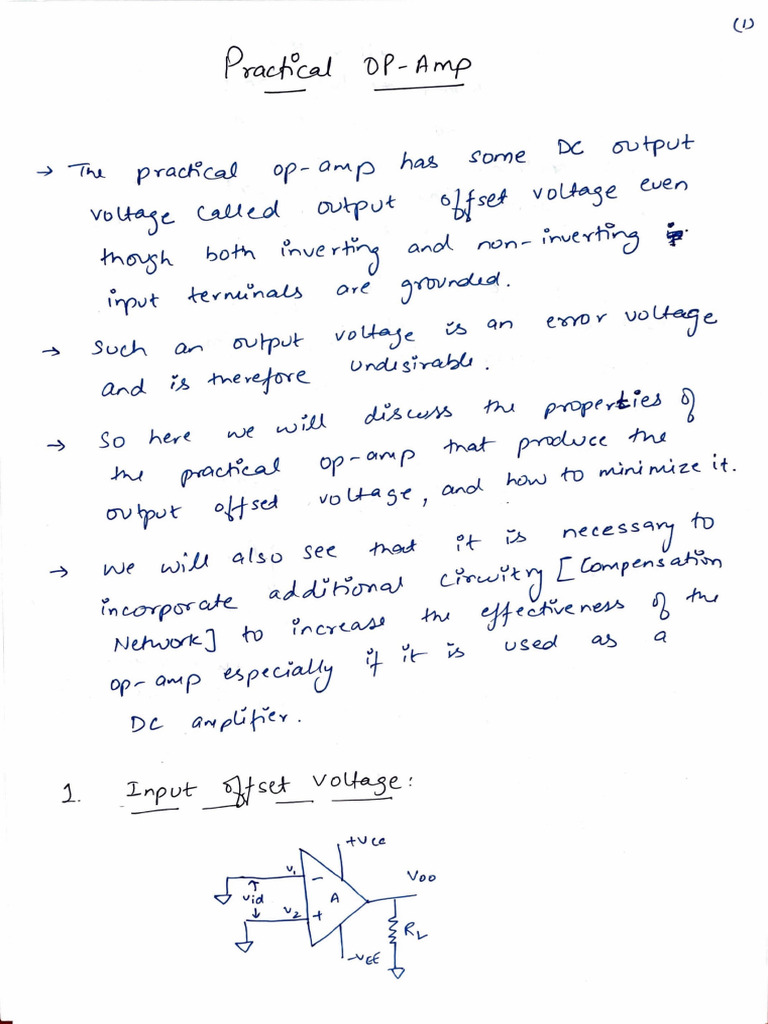 (1)
Practical OP-Amp
→ The practical op-amp has some DC output
voltage called output offset voltage even
though both inverting and non-inverting
input terminals are grounded.
→ Such an output voltage is an error voltage
and is therefore undesirable.
→ So here we will discuss the properties of
the practical op-amp that produce the
output offset voltage, and how to minimize it.
→ We will also see that it is necessary to
incorporate additional circuitry [Compensation
Network] to increase the effectiveness of the
op-amp especially if it is used as a
DC amplifier.
1. Input offset voltage:
+VCC
V1
-
VOO
vid
A
V2
+
RL
-VEE